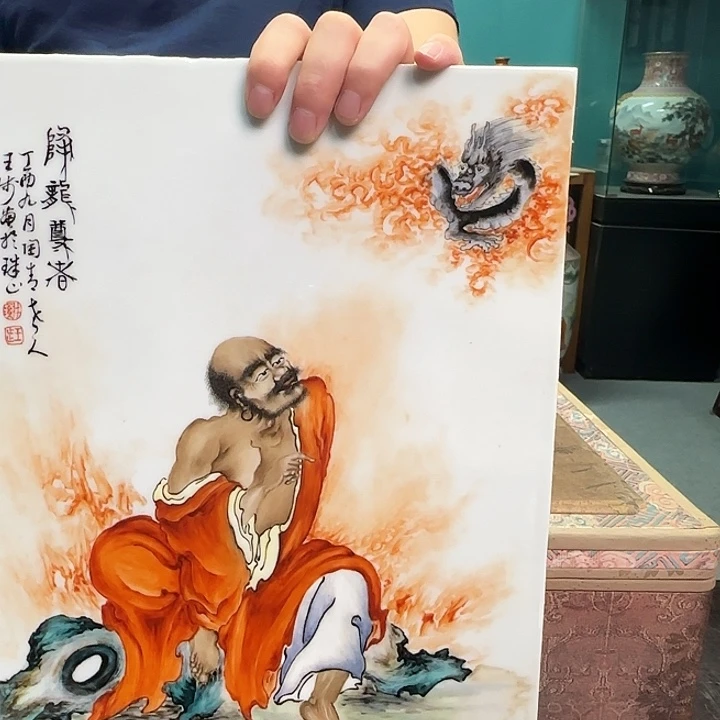 降龍尊者
丁酉九月周青老人
王步畫於珠山